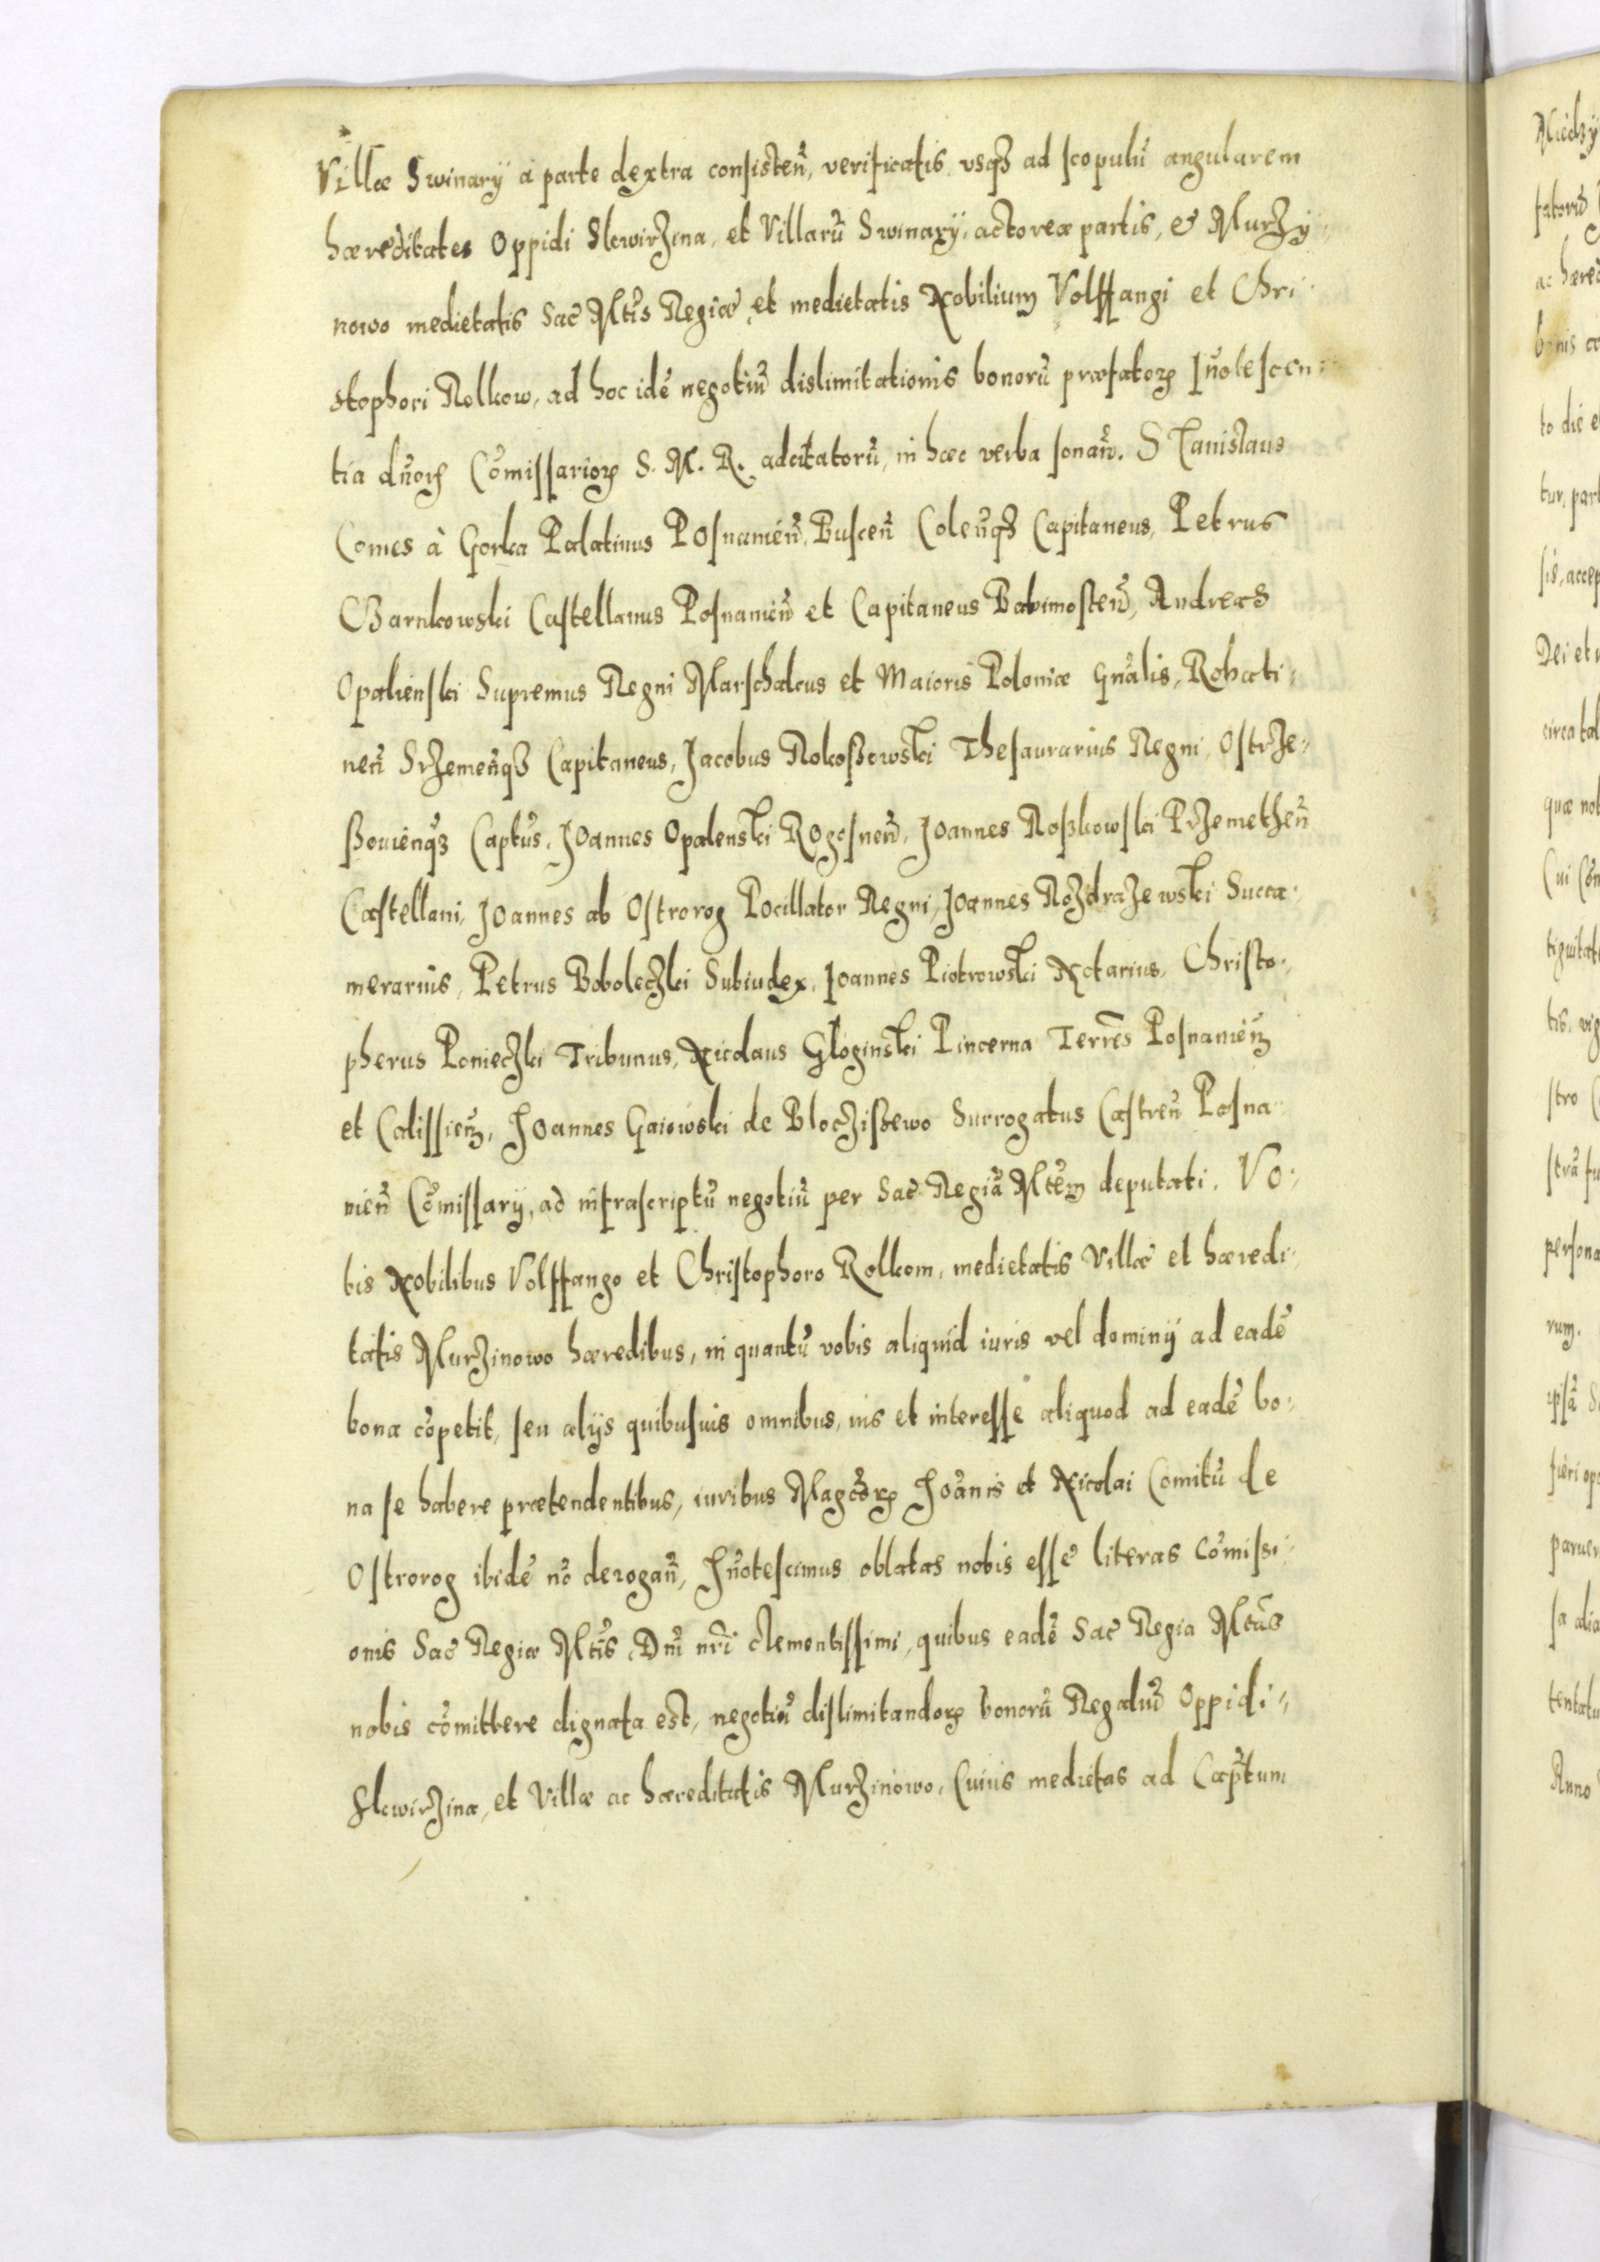 Villæ Swinary à parte dextra consisteñ, verificatis usqȝ ad scopulū angularem
hæreditates Oppidi Skwirzina, et Villarū Swinary, actoreæ partis, & Murzy-
nowo medietatis Sac̃ Mt̃is Regiæ, et medietatis Nobilium Volffangi et Chri-
stophori Rolkow, ad hoc idē negotiū dislimitationis bonorū præfatoꝝ Iñotescen-
tia dñoꝝ Cōmissarioꝝ S. M. R. adcitatorū, in hæc verba sonañ. Stanislaus
Comes à Gorka Palatinus Posnanieñ, Busceñ Coleñqȝ Capitaneus, Petrus
Czarnkowski Castellanus Posnanieñ et Capitaneus Babimosteñ, Andreas
Opalienski Supremus Regni Marschalcus et Maioris Poloniæ Gñalis, Rohati-
neñ Srzemeñqȝ Capitaneus, Jacobus Rokoßowski Thesaurarius Regni, Ostrze-
ßouieñqȝ Captũs, Joannes Opalenski Rogosneñ, Joannes Roßkowski Przemetheñ
Castellani, Joannes ab Ostrorog Pocillator Regni, Joannes Rozdrazewski Succa-
merarius, Petrus Boboleczki Subiudex, Joannes Piotrowski Notarius, Christo-
pherus Ponieczki Tribunus, Nicolaus Gloginski Pincerna Terrēs Posnanieñ
et Calissieñ, Joannes Gaiowski de Bloczißewo Surrogatus Castreñ Posna-
nieñ Cōmissary, ad infrascriptū negotiū per Sac̃ Regiā Mt̃em deputati. Vo-
bis Nobilibus Volffango et Christophoro Rolkom, medietatis Villæ et hæredi-
tatis Murzinowo hæredibus, in quantū vobis aliquid iuris vel dominÿ ad eadē
bona cōpetit, seu alÿs quibusuis omnibus, ius et interesse aliquod ad eadē bo-
na se habere prætendentibus, iuribus Magc̃oꝝ Joānis et Nicolai Comitū de
Ostrorog ibidē nō derogañ, Iñotescimus oblatas nobis esse literas Cōmissi-
onis Sac̃ Regiæ Mt̃is Dñi nr̃i clementissimi, quibus eadē Sac̃ Regia Mt̃as
nobis cōmittere dignata est, negotiū dislimitandoꝝ bonorū Regaliū Oppidi-
Skwirzina, et Villæ ac hæreditatis Murzinowo, Cuius medietas ad Cap̃tum